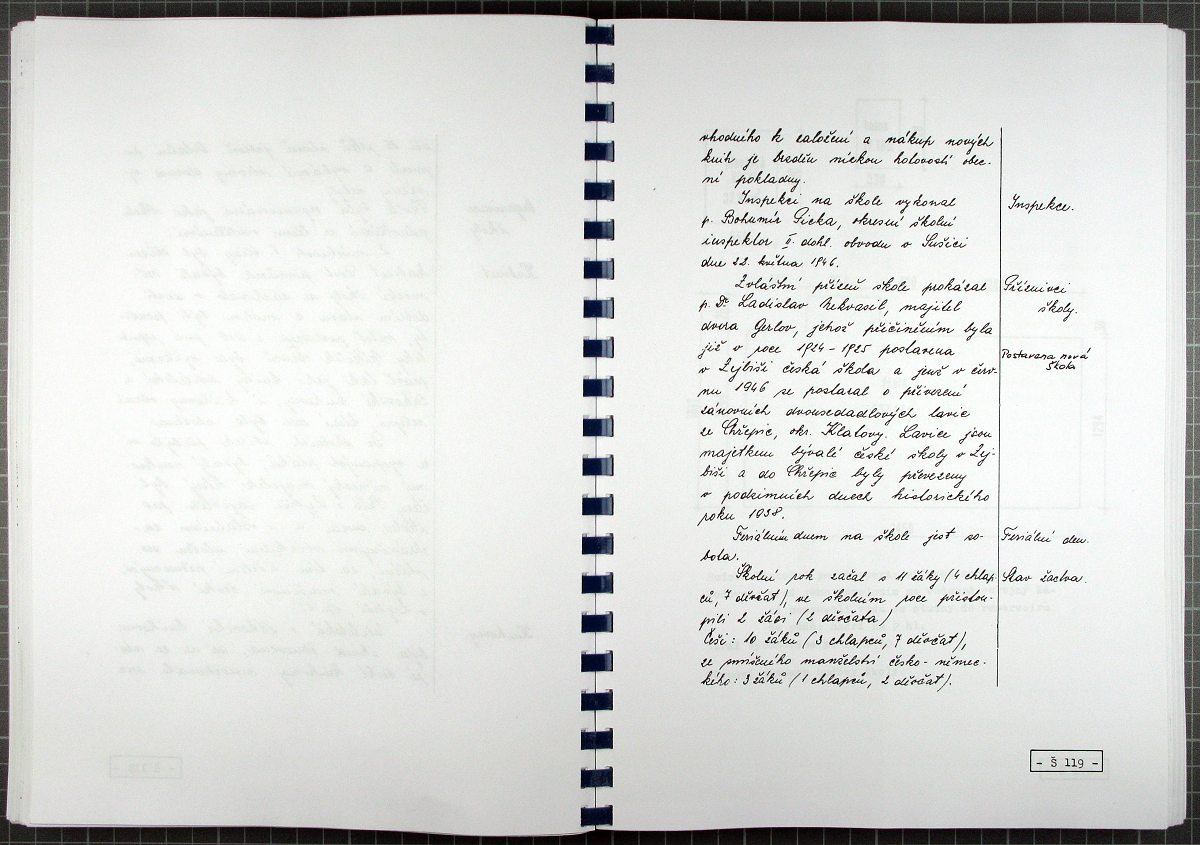 vhodného k založení a nákup nových
knih je brzděn nízkou hotovostí obec-
ní pokladny.
Inspekci na škole vykonal
p. Bohumír Cicka, okresní školní
inspektor II. dohl. obvodu v Sušici
dne 22. května 1946.
Inspekce.
Zvláštní přízeň škole prokázal
p. Dr. Ladislav Nekvasil, majitel
dvora Gerlov, jehož přičiněním byla
již v roce 1924 - 1925 postavena
v Zejbiši česká škola a jenž v červ-
nu 1946 se postaral o přivezení
zánovních dvousedadlových lavic
ze Chřepic, okr. Klatovy. Lavice jsou
majetkem bývalé české školy v Zej-
biši a do Chřepic byly převezeny
v podzimních dnech historického
roku 1938.
Příznivci
školy.
Postavena nová
škola
Feriálním dnem na škole jest so-
bota.
Feriální den.
Školní rok začal s 11 žáky (4 chlap-
ců, 7 děvčat), ve školním roce přistou-
pili 2 žáci (2 děvčata)
Češi: 10 žáků (3 chlapců, 7 děvčat),
ze smíšeného manželství česko-němec-
kého: 3 žáků (1 chlapců, 2 děvčat).
Stav žactva.
- Š 119 -